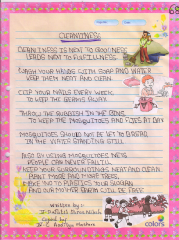 68
CLEANLINESS
CLEANLINESS IS NEXT TO GODLINESS
LEADS NEXT TO FULFILLNESS.
WASH YOUR HANDS WITH SOAP AND WATER
KEEP THEM NEAT AND CLEAN.
CLIP YOUR NAILS EVERY WEEK,
TO KEEP THE GERMS AWAY.
THROW THE RUBBISH IN THE BINS,
TO KEEP THE MOSQUITOES AND FLIES AT BAY
MOSQUITOES SHOULD NOT BE LET TO BREED
IN THE WATER STANDING STILL
ALSO BY USING MOSQUITOES NETS
PEOPLE CAN NEVER FALL ILL.
KEEP YOUR SURROUNDINGS NEAT AND CLEAN
PLANT MORE AND MORE TREES.
SAY NO TO PLASTICS YOUR
AND OUR MOTHER EARTH WILL BE FREE
Written by :-
Copied by
colors